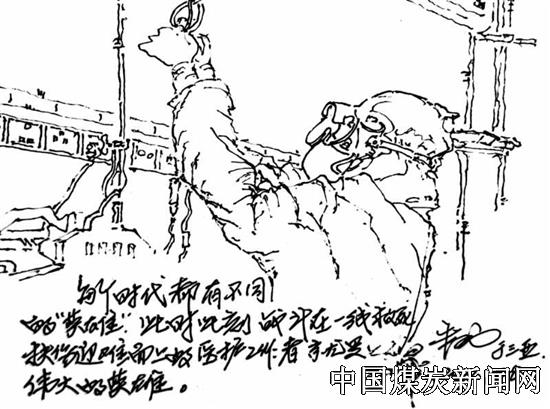 每个时代都有不同
的"英雄"。此时此刻战斗在一线救死
扶伤迎难而上的医护工作者
伟大的英雄。
于三亚
中国煤炭新闻网